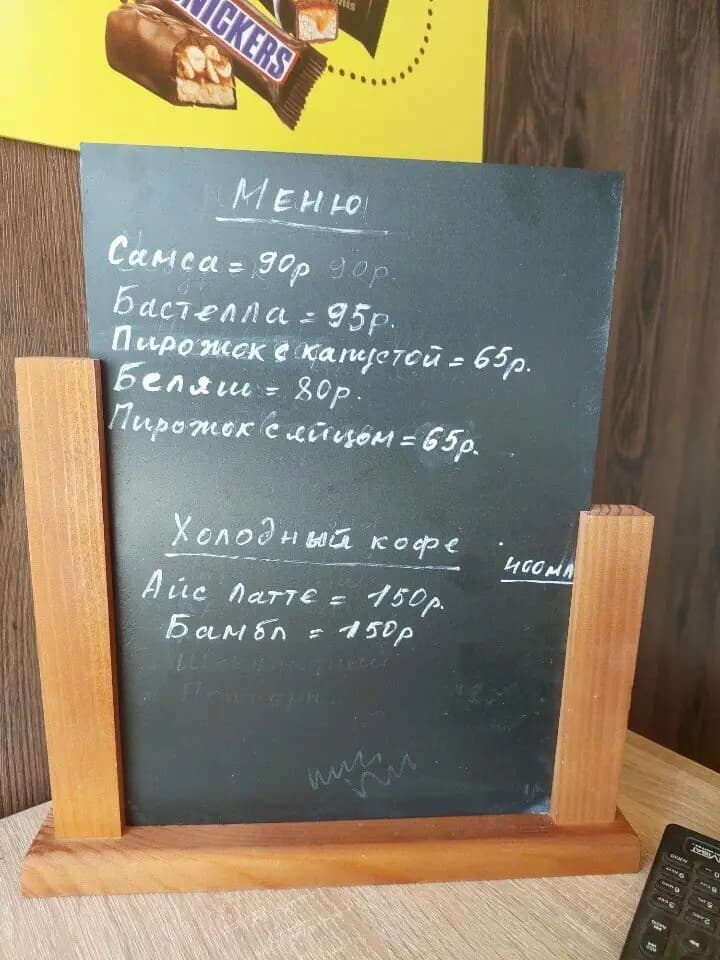 SNICKERS
Меню
Самса = 90р 90р.
Бастелла = 95р.
Пирожок с капустой = 65р.
Беляш = 80р.
Пирожок с яйцом = 65р.
Холодный кофе
400мл
Айс латте = 150р.
Бамбл = 150р